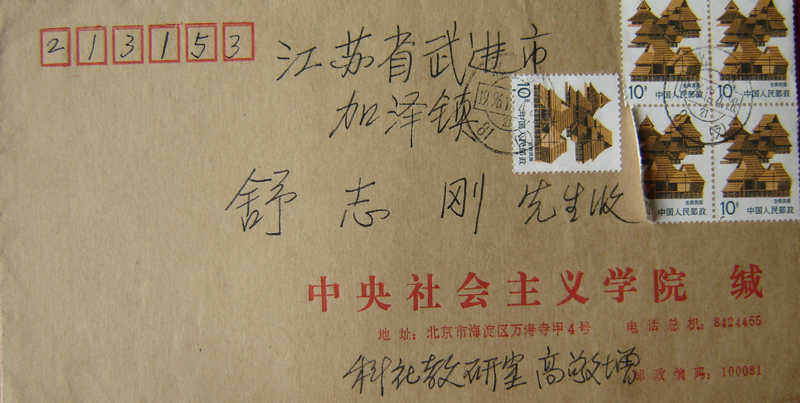 213153
江苏省武进市
加泽镇
舒志刚 先生收
10分 中国人民邮政
10分 中国人民邮政
10分 中国人民邮政
中国人民邮政
10分 中国人民邮政
中央社会主义学院 缄
地址:北京市海淀区万得寺甲4号 电话总机:8424455
科社教研室 高敬增
邮政编码:100081